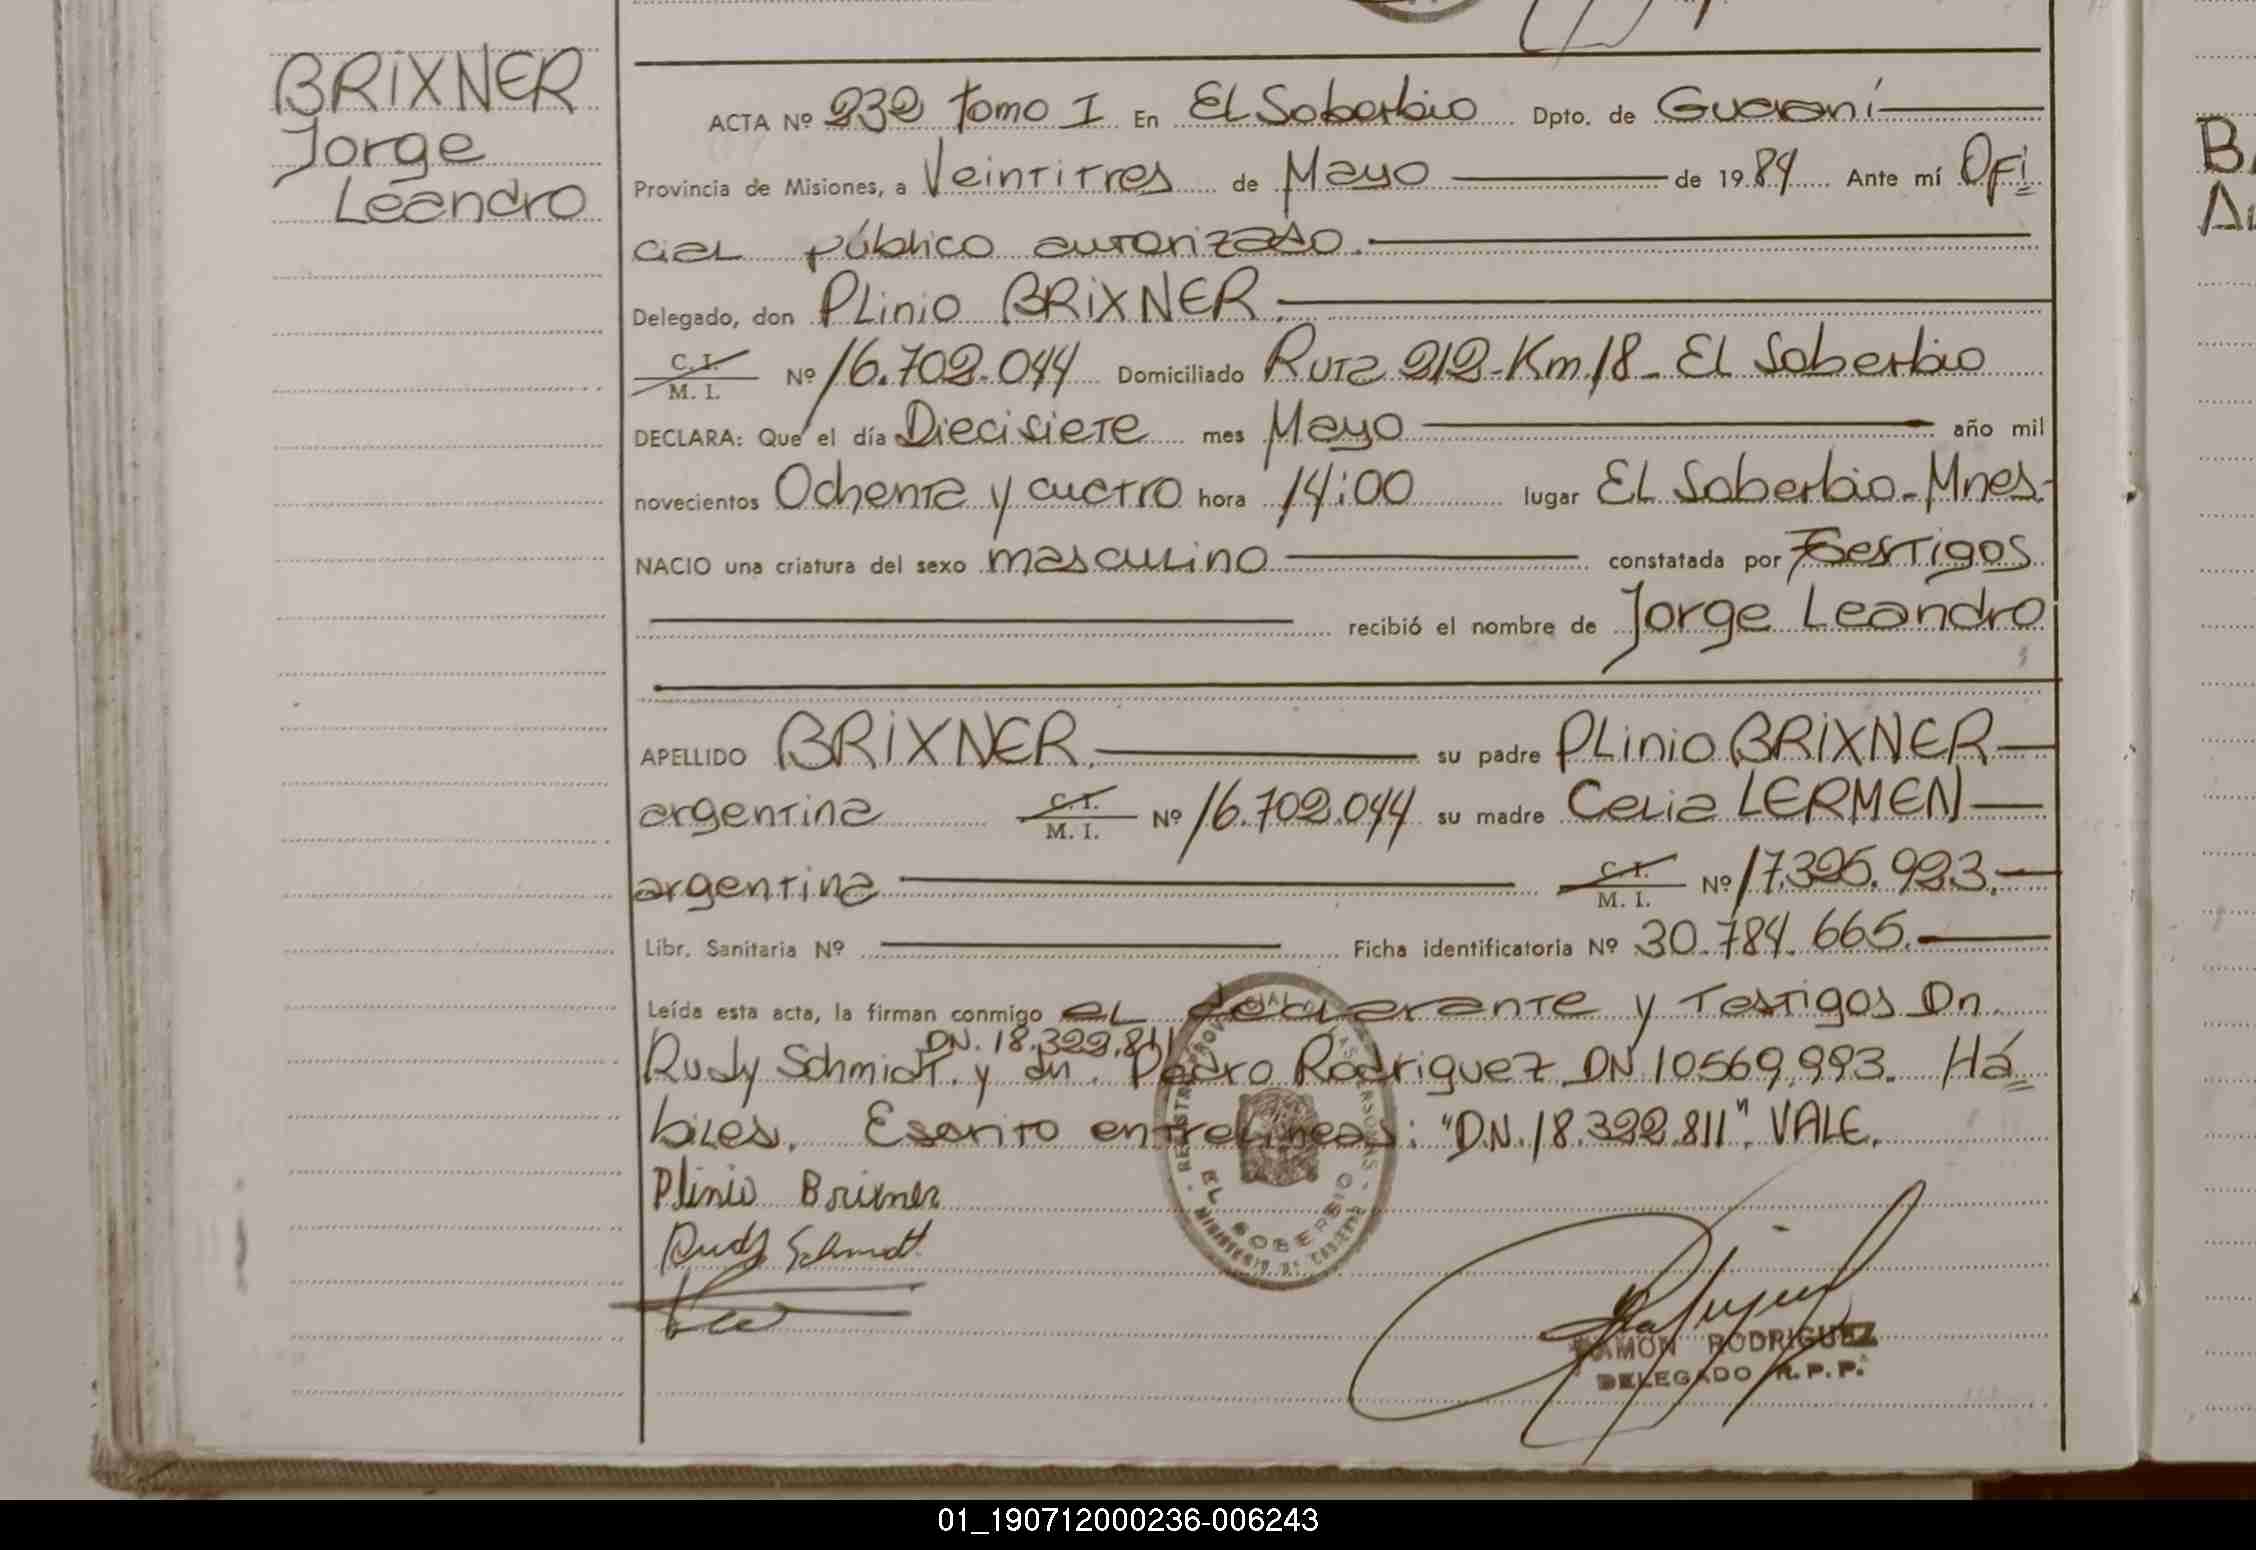 BRIXNER
Jorge
Leandro
ACTA Nº 232 tomo I En El Soberbio Dpto. de Guaraní
Provincia de Misiones, a Veintitres de Mayo de 1984 Ante mí Ofi
cial público autorizado.
Delegado, don Plinio BRIXNER.
C. I.
M. I. Nº 16.702.044 Domiciliado Ruta 212-Km.18-El Soberbio
DECLARA: Que el día Diecisiete mes Mayo año mil
novecientos Ochenta y cuatro hora 14:00 lugar El Soberbio-Mnes-
NACIO una criatura del sexo masculino constatada por Testigos
recibió el nombre de Jorge Leandro
APELLIDO BRIXNER. su padre Plinio BRIXNER
argentina C. I. M. I. Nº 16.702.044 su madre Celia LERMEN
argentina C. I. M. I. Nº 17.325.923.
Libr. Sanitaria Nº Ficha identificatoria Nº 30.784.665.
Leída esta acta, la firman conmigo el declarante y Testigos Dn.
DN. 18.322.811
Rudy Schmidt. y dn. Pedro Rodriguez DN 10569.993. Há
biles. Escrito entrelineas: "D.N. 18.322.811". VALE.
Plinio Brixner
Rudy Schmidt
EL SOBERBIO
RAMON RODRIGUEZ
DELEGADO R.P.P.
B
A
01_190712000236-006243